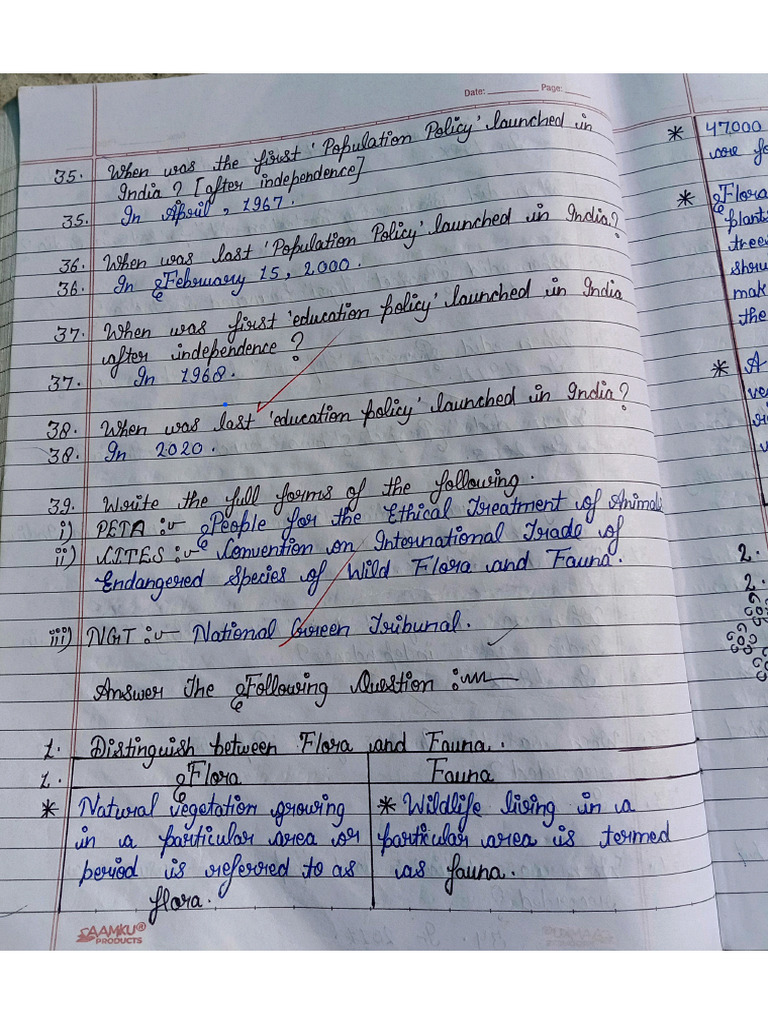 Date: ________ Page: ______
35. When was the first 'Population Policy' launched in
India ? [after independence]
35. In April, 1967.
36. When was last 'Population Policy' launched in India?
36. In February 15, 2000.
37. When was first 'education policy' launched in India
after independence ?
37. In 1968.
38. When was last 'education policy' launched in India?
38. In 2020.
39. Write the full forms of the following.
i) PETA :- People for the Ethical Treatment of Animals
ii) CITES :- Convention on International Trade of
Endangered Species of Wild Flora and Fauna.
iii) NGT :- National Green Tribunal.
Answer The Following Question :-
1. Distinguish between Flora and Fauna.
1. Flora
Fauna
* Natural vegetation growing
in a particular area or
period is referred to as
flora.
* Wildlife living in a
particular area is termed
as fauna.
SAAMKU®
PRODUCTS
* 47000
are fo
* Flora
plant
tree
shru
mak
the
* A
ve
2.
2.